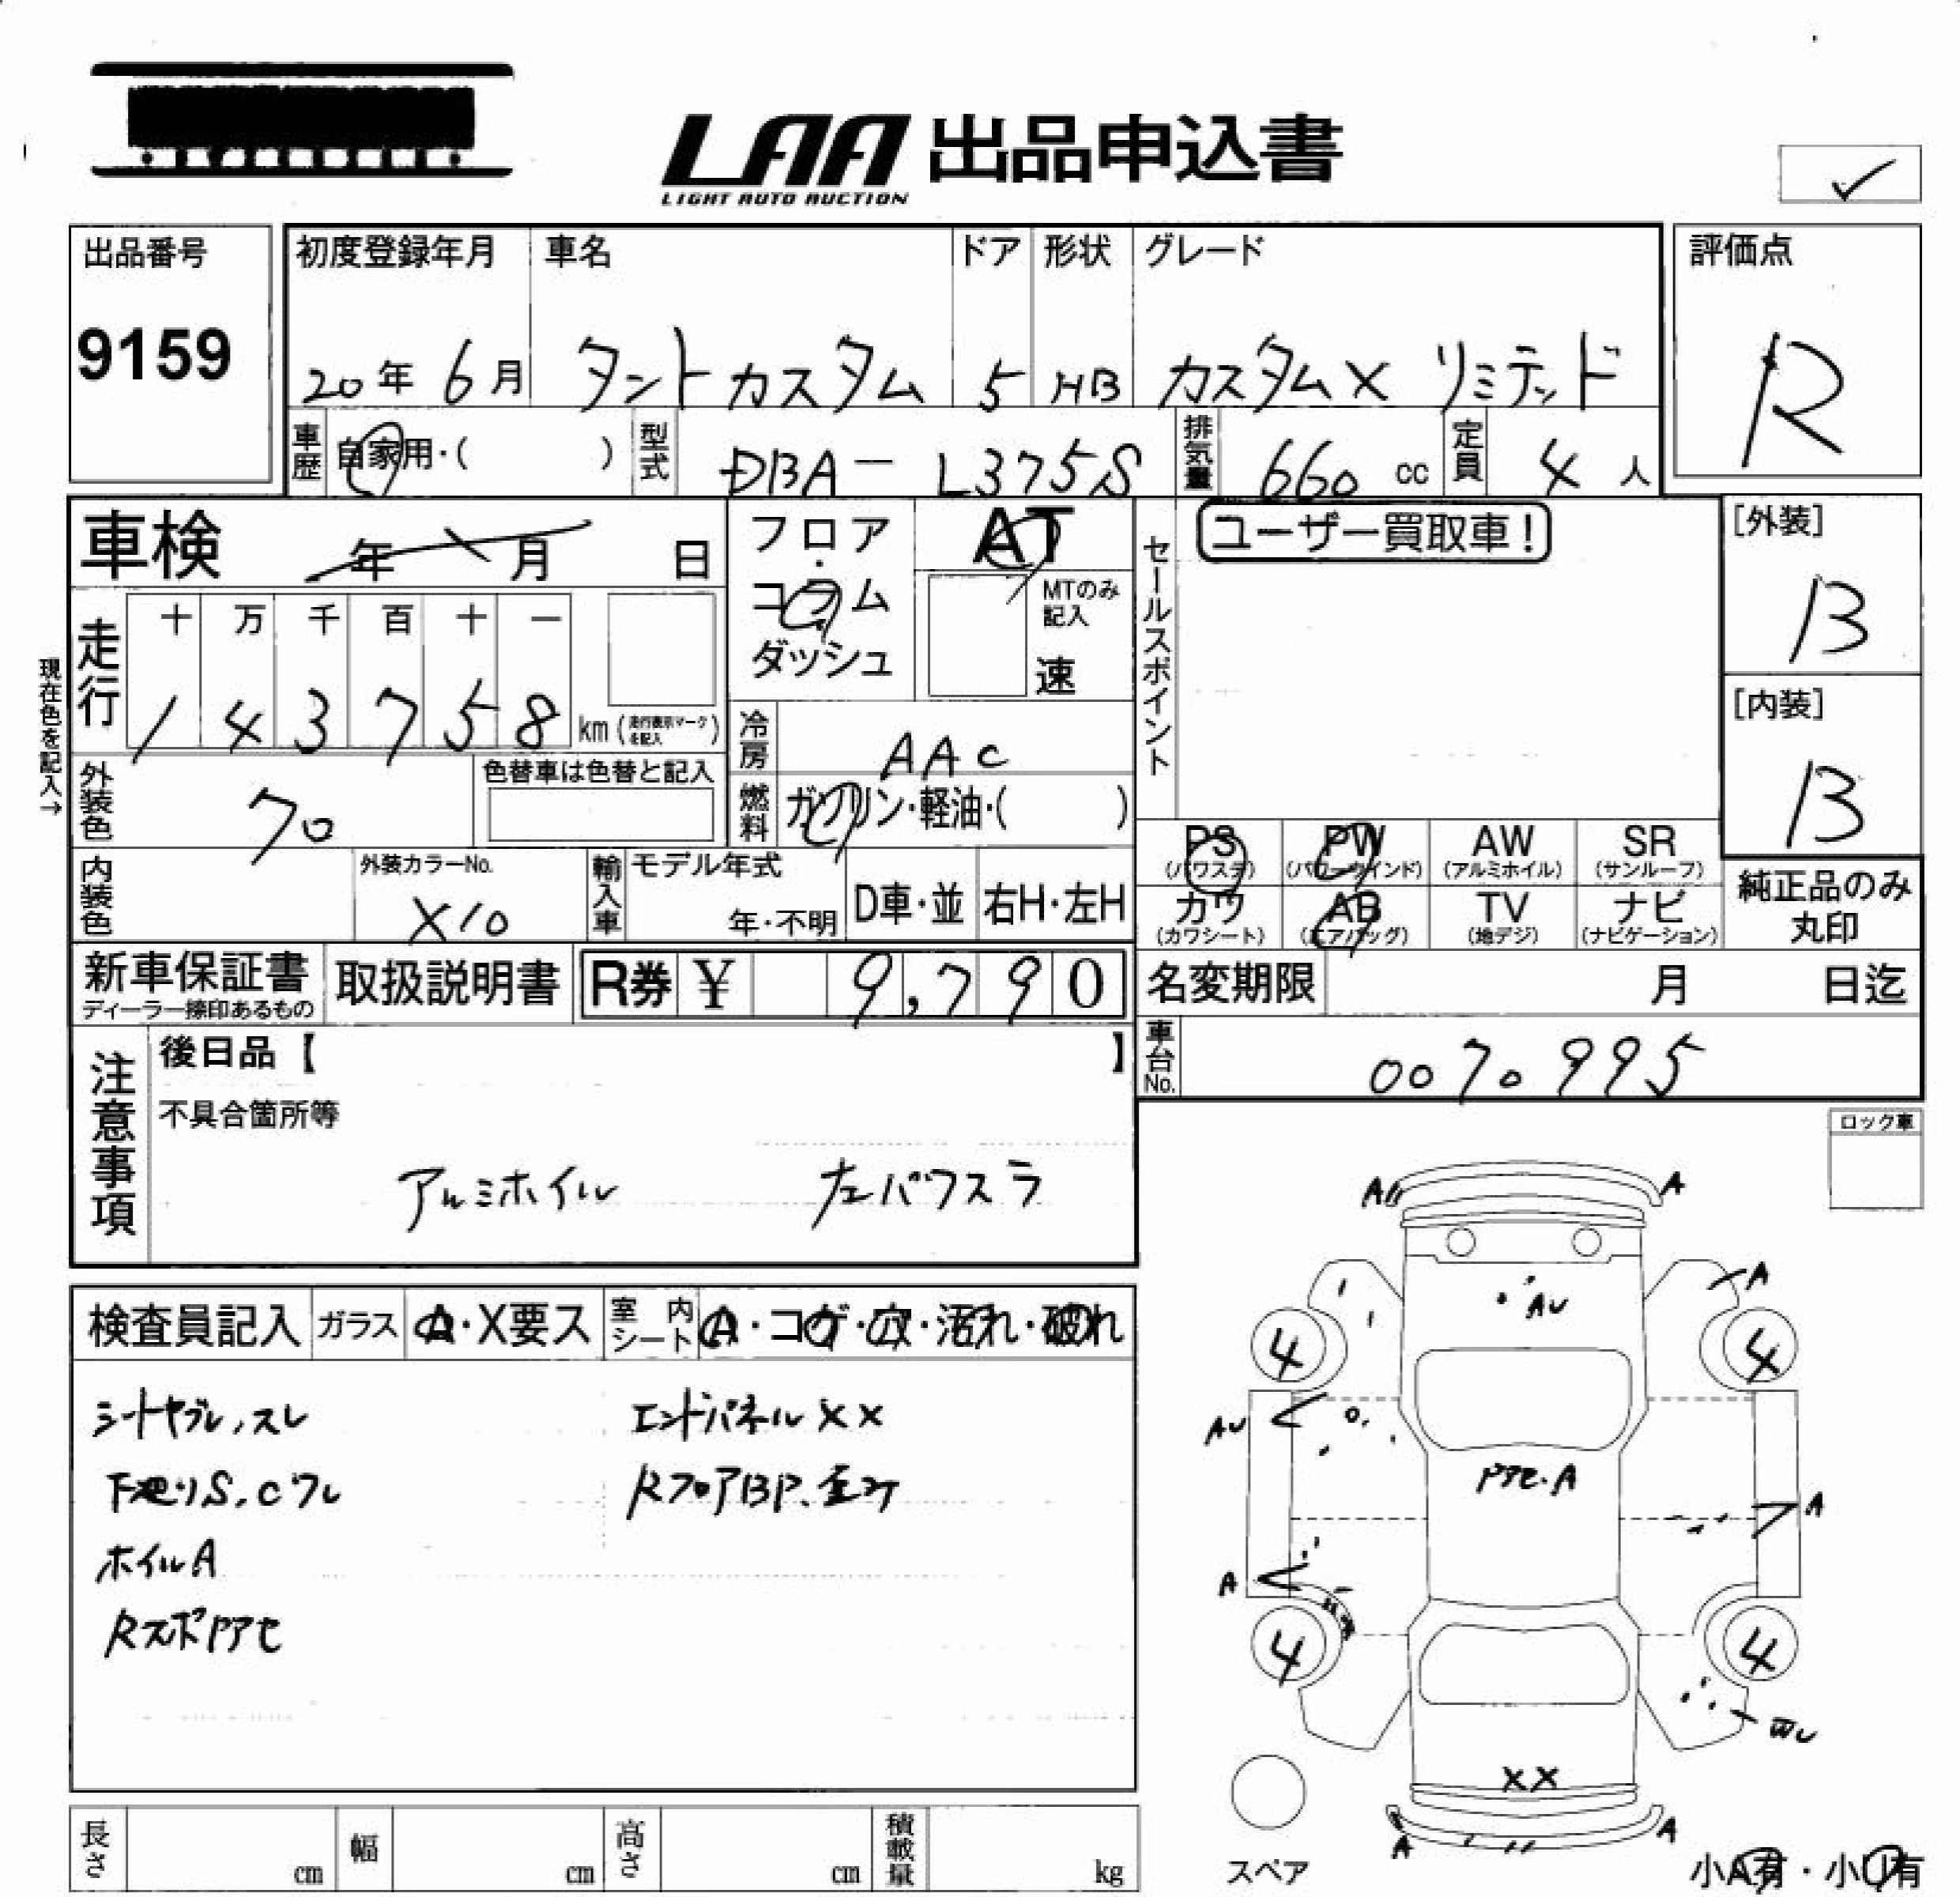 LAA 出品申込書
LIGHT AUTO AUCTION
出品番号
9159
初度登録年月 車名 ドア 形状 グレード
20年 6月 タントカスタム 5 HB カスタムX リミテッド
評価点
R
車歴 自家用・( ) 型式 DBA-L375S 排気量 660 cc 定員 4 人
車検 年 月 日
フロア・コラム ダッシュ
AT
MTのみ記入
速
セールスポイント
ユーザー買取車!
[外装]
B
[内装]
B
現在色を記入→
走行 十 万 千 百 十 一
1 4 3 7 5 8 km (走行表示マークを記入)
冷房 AAC
外装色 クロ
色替車は色替と記入
燃料 ガソリン・軽油・( )
内装色
外装カラーNo.
X10
輸入車 モデル年式
年・不明
D車・並 右H・左H
PS (パワステ) PW (パワーウインド) AW (アルミホイル) SR (サンルーフ)
カワ (カワシート) AB (エアバッグ) TV (地デジ) ナビ (ナビゲーション)
純正品のみ丸印
新車保証書
ディーラー捺印あるもの
取扱説明書
R券 ¥ 9,790
名変期限 月 日迄
車台No. 0070995
注意事項
後日品【 】
不具合箇所等
アルミホイル 左パワスラ
ロック車
検査員記入 ガラス A・X要ス 室内シート A・コゲ・穴・汚れ・破れ
シートヤブレ,スレ エンドパネルXX
下廻りS,Cワレ RフロアBP,歪み
ホイルA
RスポドアセA
A A
AU
A
4 4
AU
A
A
4 4
XX
A A
長さ cm 幅 cm 高さ cm 積載量 kg
スペア
小A有・小U有